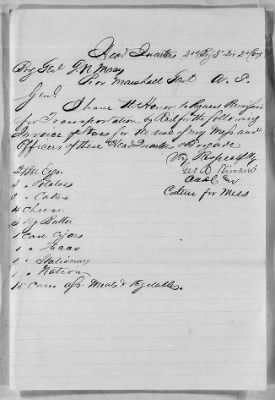 Head Quarters 2nd Brig 3d Div 2nd Corps
Brig Genl
Pro Marshall Genl U. S.
Genl
I have the Honor to Request Permission
for Transportation by Rail for the following
Invoice of Stores for the use of my Mess and
Officers of these Head Quarters Brigade
Very Respectfully
Caterer for Mess
2 Bbls Eggs
3 " Potatoes
3 " Cakes
4 Cheese
3 Kg Butter
1 Case Cigars
1 "
1 " Stationary
1 " Notions
15 Cans of Meats & Vegetables.